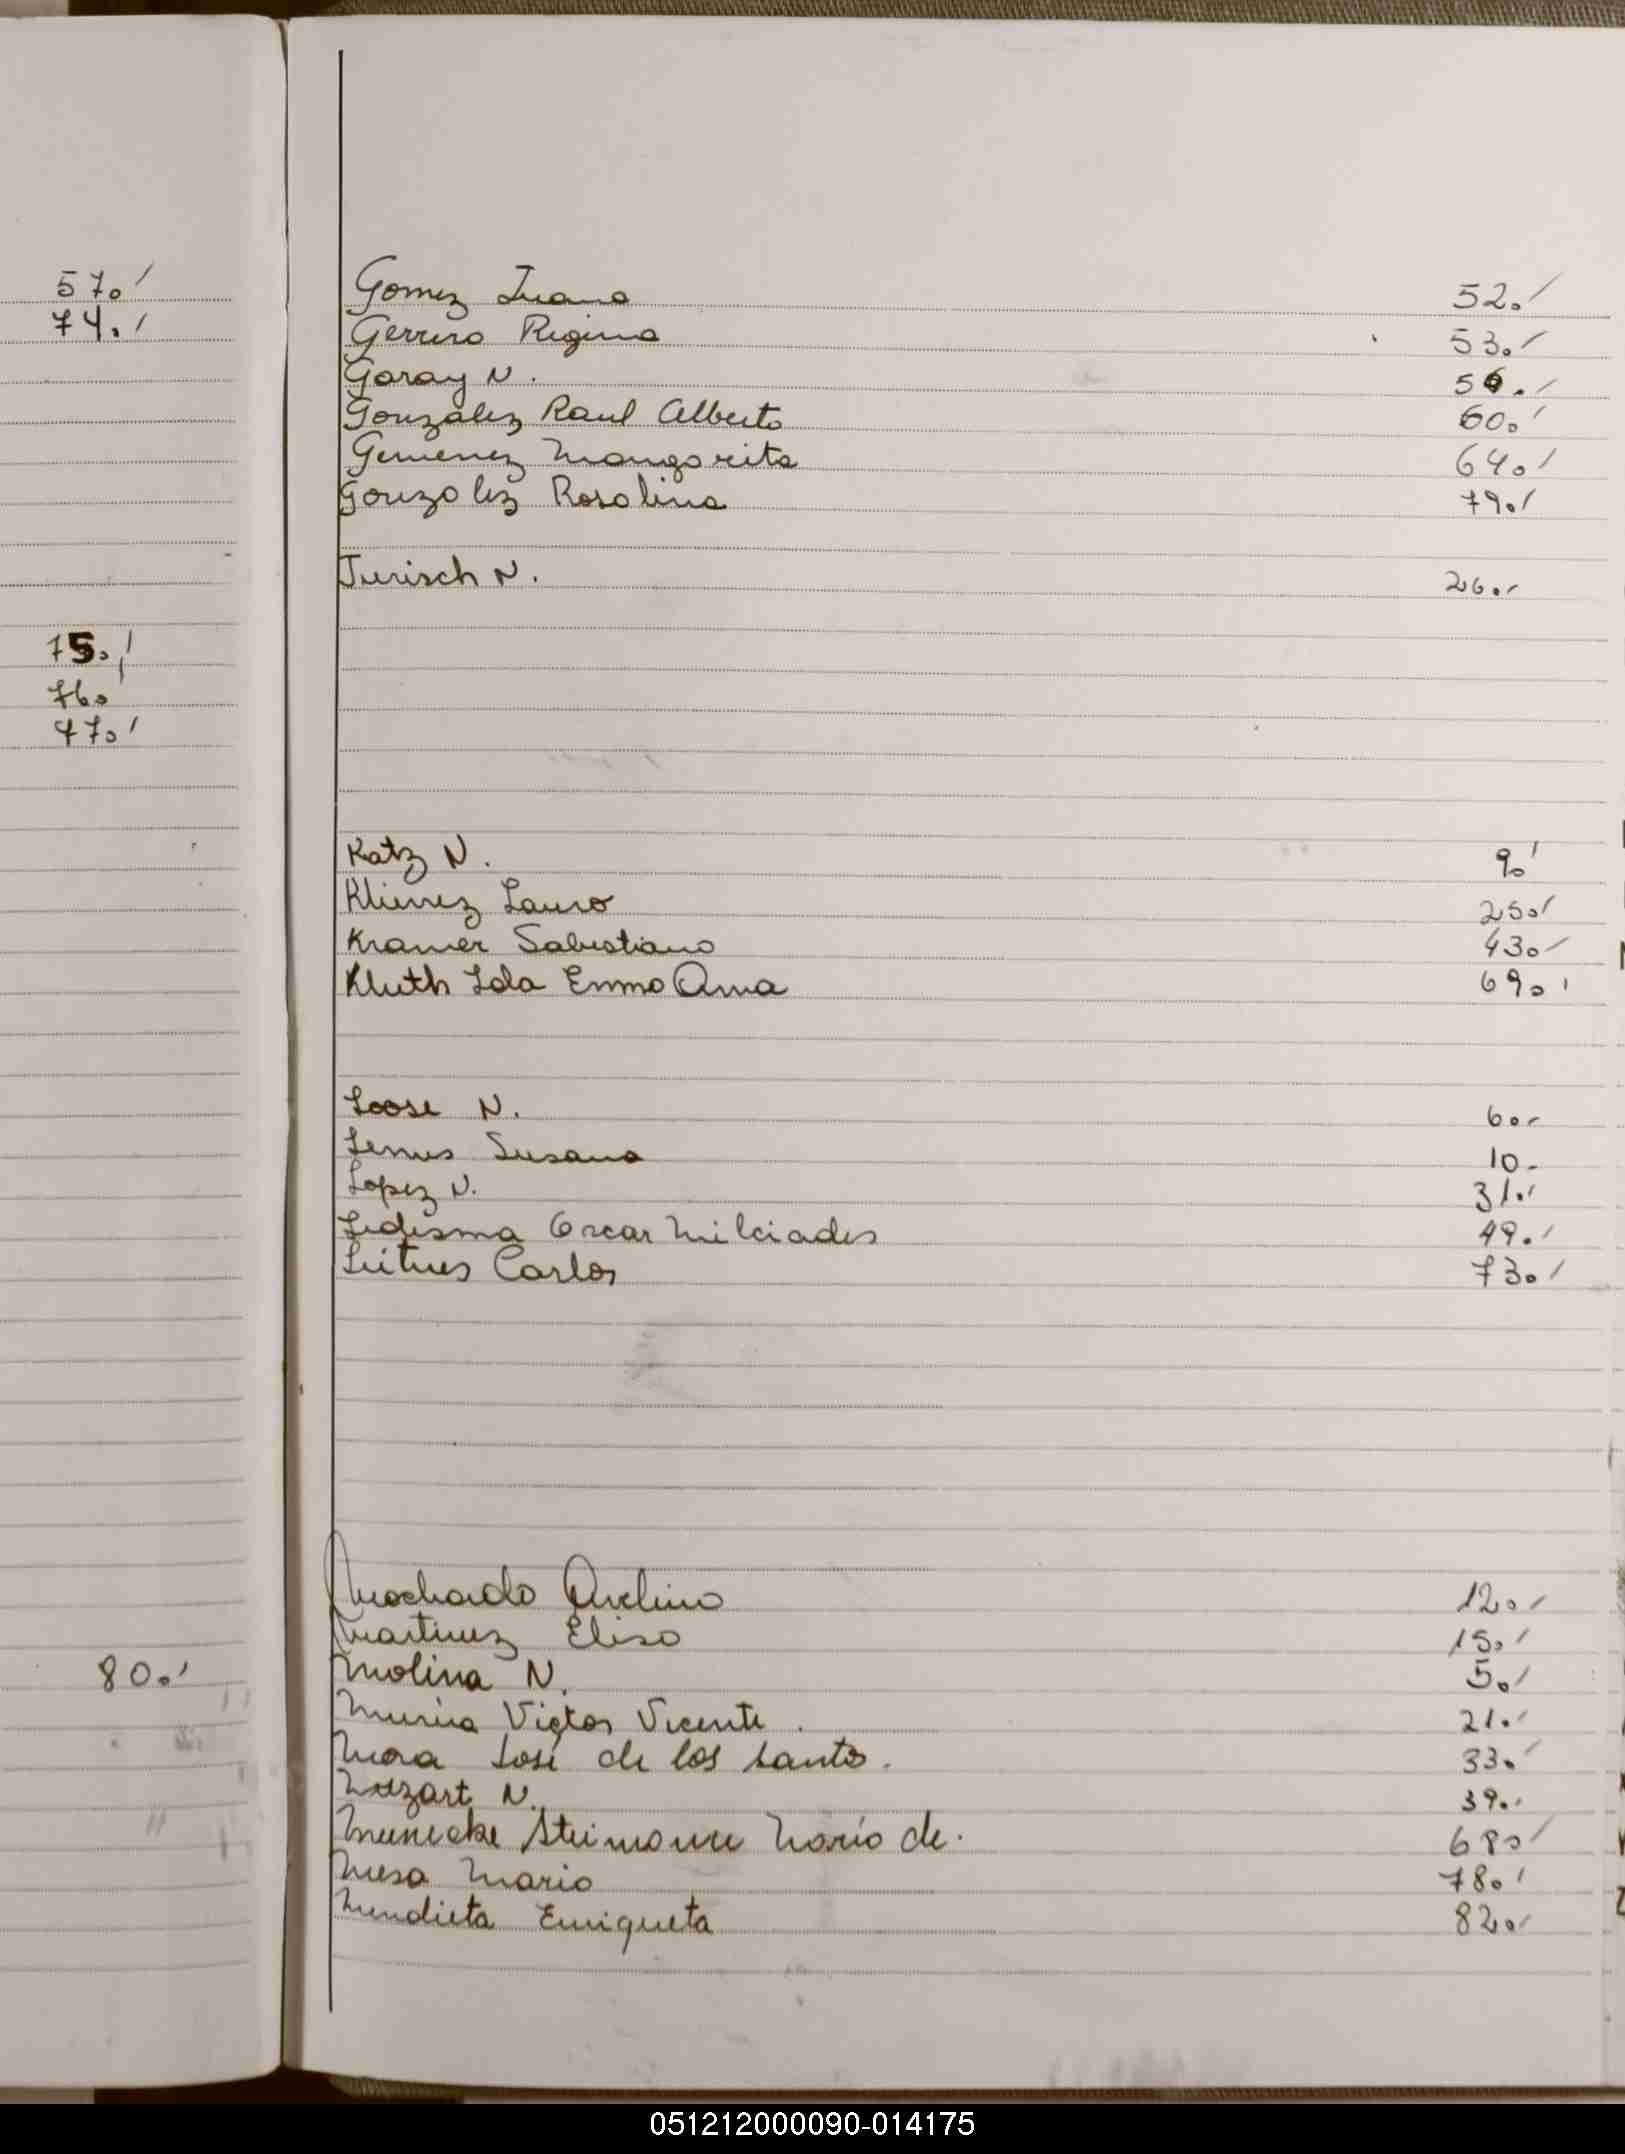 57.
74.
75.
76.
47.
80.
Gomez Juana 52.
Gerrero Regina 53.
Garay N. 56.
Gonzalez Raul Alberto 60.
Gemenez Mangarita 64.
Gonzalez Rosalina 79.
Jurisch N. 26.
Katz N. 9.
Lauro 25.
Kramer Sabastiano 43.
Kluth Lola Emma Ana 69.
Loose N. 6.
Lemus Susana 10.
Lopez N. 31.
Ledesma Oscar Milciades 49.
Carlos 73.
Machado Avelino 12.
Martinez Elisa 15.
Molina N. 5.
Victor Vicente. 21.
Mora José de los Santos. 33.
Mozart N. 39.
María de. 68.
Mesa Mario 78.
Mendieta Enriqueta 82.
051212000090-014175